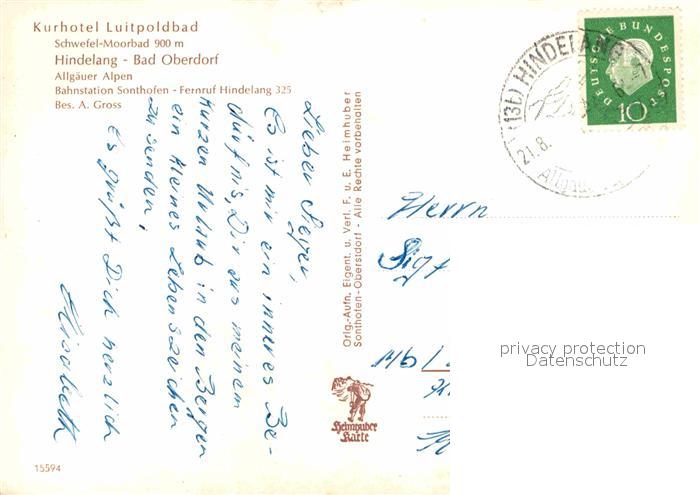 Kurhotel Luitpoldbad
Schwefel-Moorbad 900 m
Hindelang - Bad Oberdorf
Allgäuer Alpen
Bahnstation Sonthofen - Fernruf Hindelang 325
Bes. A. Gross
Lieber Sieger,
Es ist mir ein inneres Be-
dürfnis, Dir aus meinem
kurzen Urlaub in den Bergen
ein kleines Lebenszeichen
zu senden.
Es grüßt Dich herzlich
Elisabeth
Orig.-Aufn. Eigent. u. Verl. F. u. E. Heimhuber
Sonthofen-Oberstdorf - Alle Rechte vorbehalten
Heimhuber
Karte
15594
(13b) HINDELANG
21.8.
DEUTSCHE BUNDESPOST
10
Herrn
Mb/
privacy protection
Datenschutz